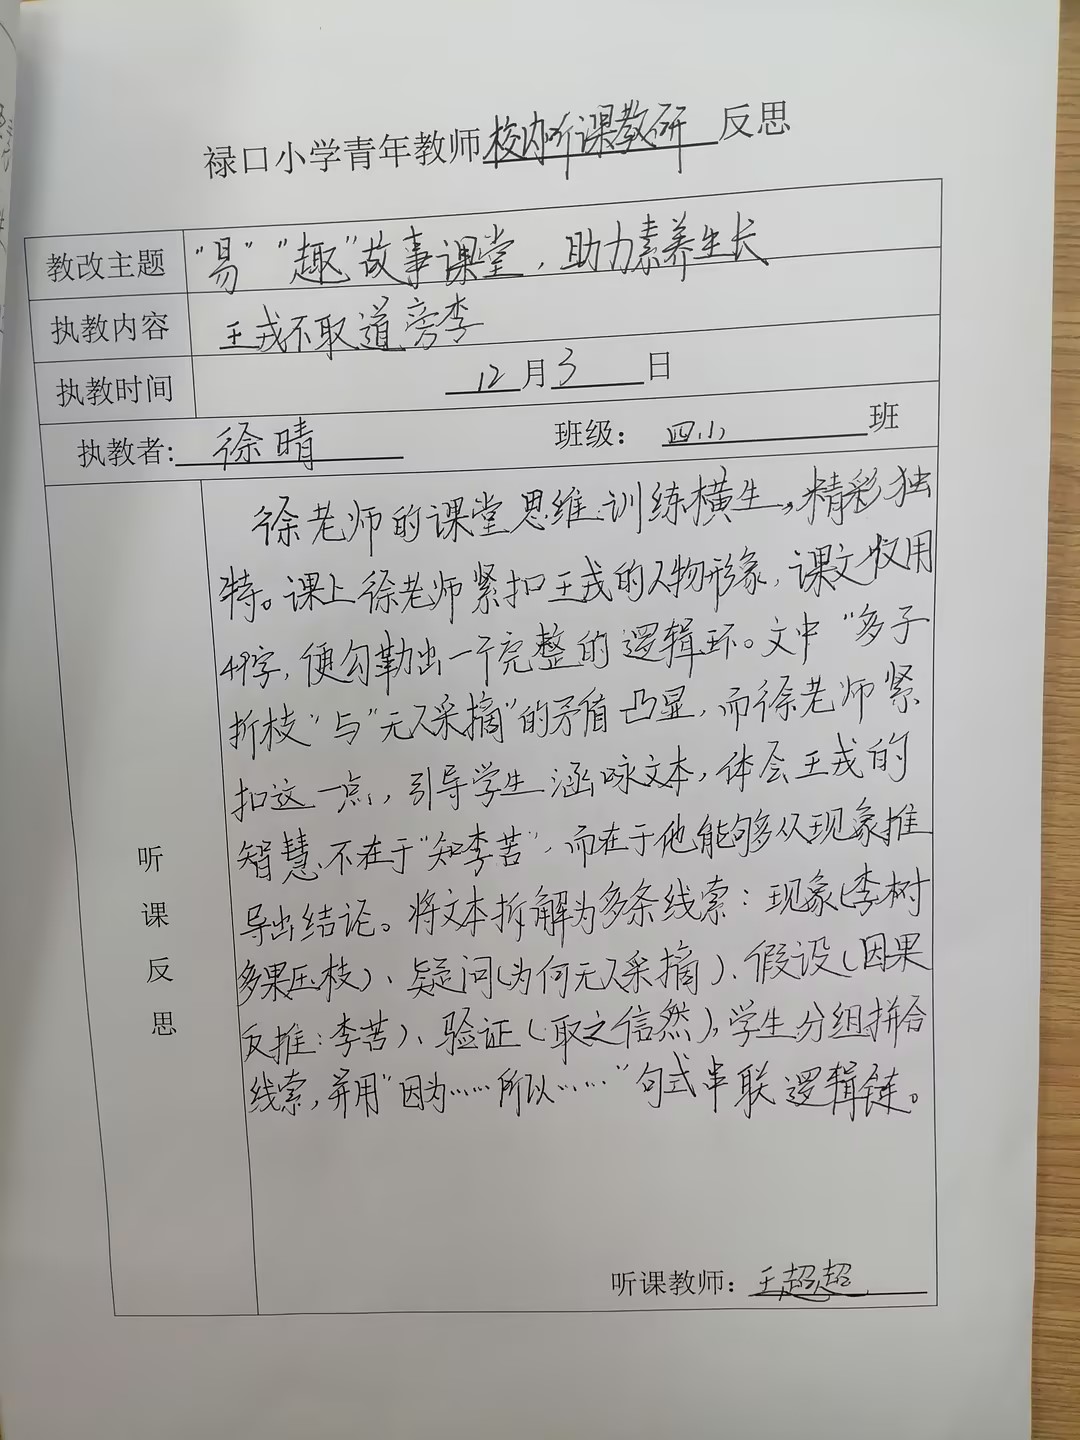 禄口小学青年教师校内听课教研反思
教改主题 “易”“趣”故事课堂，助力素养生长
执教内容 王戎不取道旁李
执教时间 12月3日
执教者：徐晴 班级：四小班
徐老师的课堂思维训练横生，精彩独
特。课上徐老师紧扣王戎的人物形象，课文仅用
49字，便勾勒出一个完整的逻辑环。文中“多子
折枝”与“无人采摘”的矛盾凸显，而徐老师紧
扣这一点，引导学生涵咏文本，体会王戎的
智慧不在于“知李苦”，而在于他能够从现象推
导出结论。将文本拆解为多条线索：现象（李树
多果压枝）、疑问（为何无人采摘）、假设（因果
反推：李苦）、验证（取之信然），学生分组拼合
线索，并用“因为……所以……”句式串联逻辑链。
听
课
反
思
听课教师：王超超